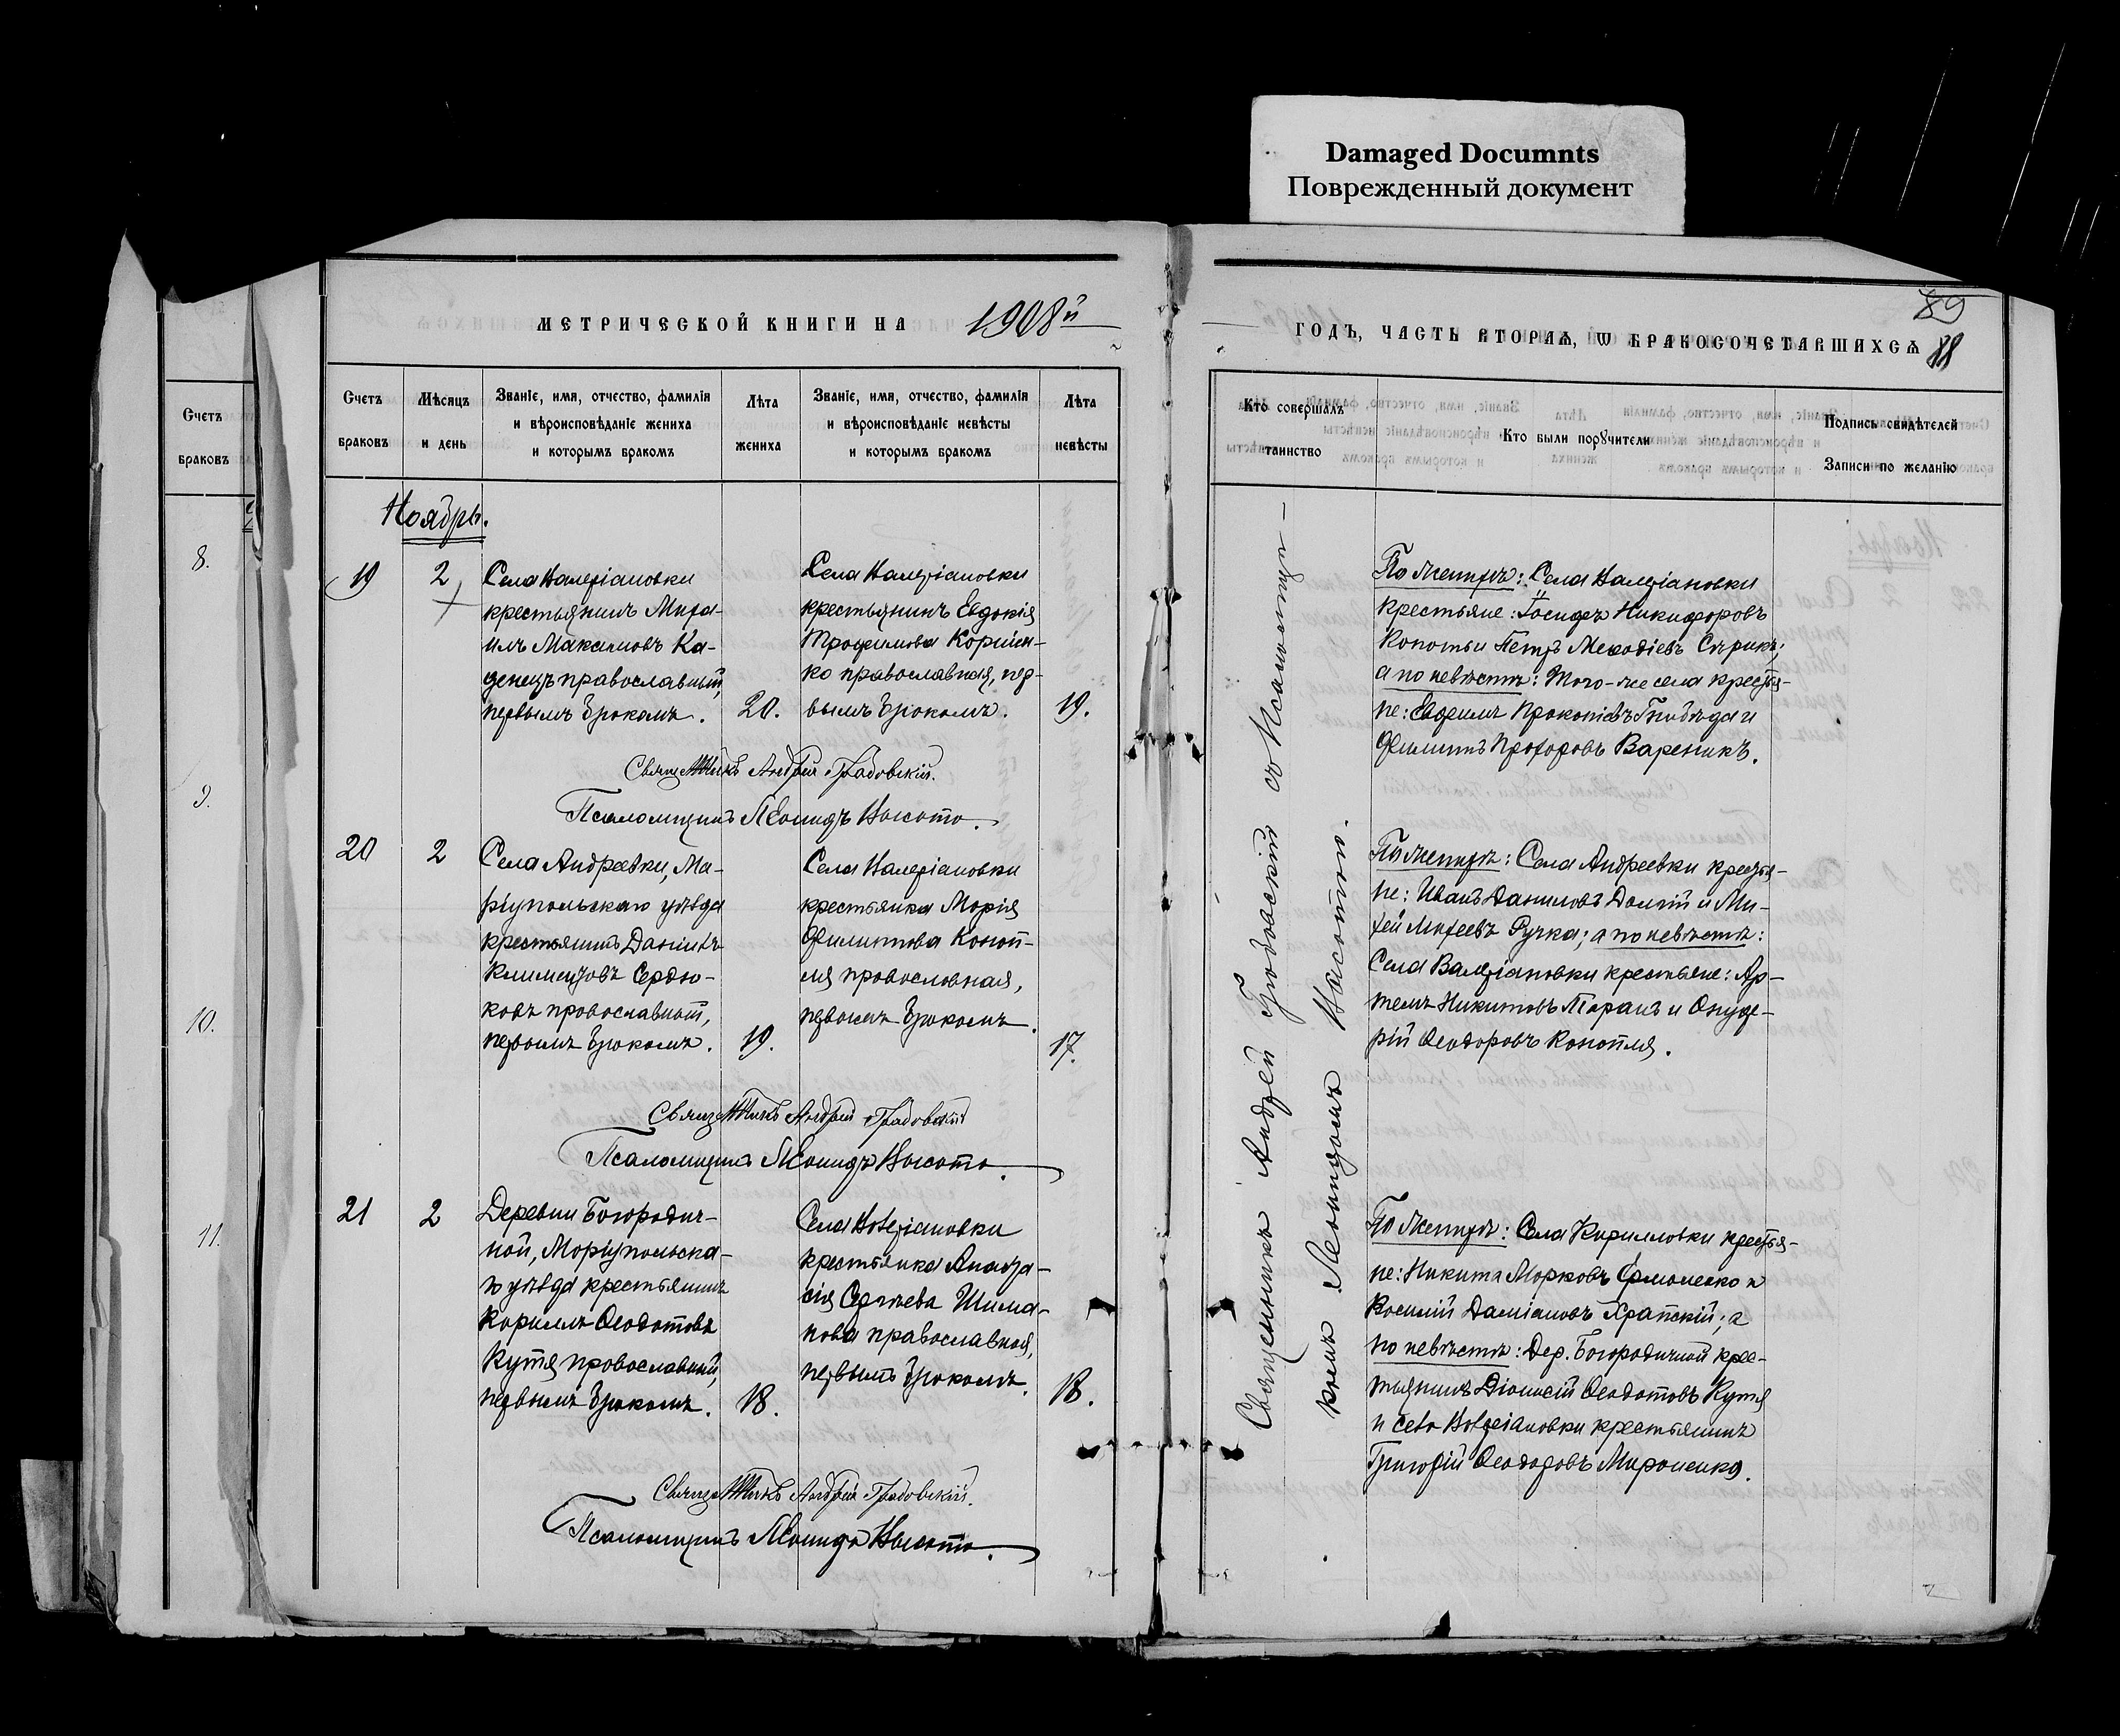 Damaged Documnts
Поврежденный документ
МЕТРИЧЕСКОЙ КНИГИ НА 1908й
ГОДЪ, ЧАСТЬ ВТОРАѦ, Ѡ БРАКОСОЧЕТАВШИХСѦ
89
88
Счетъ
браковъ
8.
9.
10.
11.
Счетъ
браковъ
Мѣсяцъ
и день
Званіе, имя, отчество, фамилія
и вѣроисповѣданіе жениха
и которымъ бракомъ
Лѣта
жениха
Званіе, имя, отчество, фамилія
и вѣроисповѣданіе невѣсты
и которымъ бракомъ
Лѣта
невѣсты
Кто совершалъ
таинство
Кто были поручители
Подпись свидѣтелей
Записи по желанію
Ноябрь.
19
2
Села Валеріановки
крестьянинъ Миха-
илъ Максимовъ Ка-
денецъ православный,
первымъ бракомъ.
20.
Села Валеріановки
крестьянинъ Евдокія
Трофимова Корніен-
ко православная, пер-
вымъ бракомъ.
19.
Священникъ Андрей Грабовскій.
Псаломщикъ Леонидъ Высота.
20
2
Села Андреевки, Ма-
ріупольскаго уѣзда
крестьянинъ Даніилъ
Климентовъ Сердю-
ковъ православный,
первымъ бракомъ.
19.
Села Валеріановки
крестьянка Марія
Филиппова Коноп-
ля православная,
первымъ бракомъ.
17.
Священникъ Андрей Грабовскій
Псаломщикъ Леонидъ Высота.
21
2
Деревни Богородич-
ной, Маріупольска-
го уѣзда крестьянинъ
Кириллъ Ѳеодотовъ
Кутя православный,
первымъ бракомъ.
18.
Села Валеріановки
крестьянка Анаста-
сія Сергѣева Шима-
нова православная,
первымъ бракомъ.
18.
Священникъ Андрей Грабовскій.
Псаломщикъ Леонидъ Высота.
Священникъ Андрей Грабовскій съ Псаломщи-
комъ Леонидомъ Высотою.
По женихѣ: Села Валеріановки
крестьяне: Іосифъ Никифоровъ
Копоть и Петръ Меѳодіевъ Сѣрикъ;
а по невѣстѣ: Того-же села крестья-
не: Евфимъ Прокопіевъ Гнибѣда и
Филиппъ Прохоровъ Вареникъ.
По женихѣ: Села Андреевки крестья-
не: Иванъ Даниловъ Долгій и Ми-
хей Михеевъ Ручка; а по невѣстѣ:
Села Валеріановки крестьяне: Ар-
темъ Никитовъ Таранъ и Онуф-
рій Ѳеодоровъ Конопля.
По женихѣ: Села Кирилловки крестья-
не: Никита Марковъ Ермоленко и
Василій Даміановъ Храпскій; а
по невѣстѣ: Дер. Богородичной крес-
тьянинъ Діонисій Ѳеодотовъ Кутя
и села Валеріановки крестьянинъ
Григорій Ѳеодоровъ Мироненко.